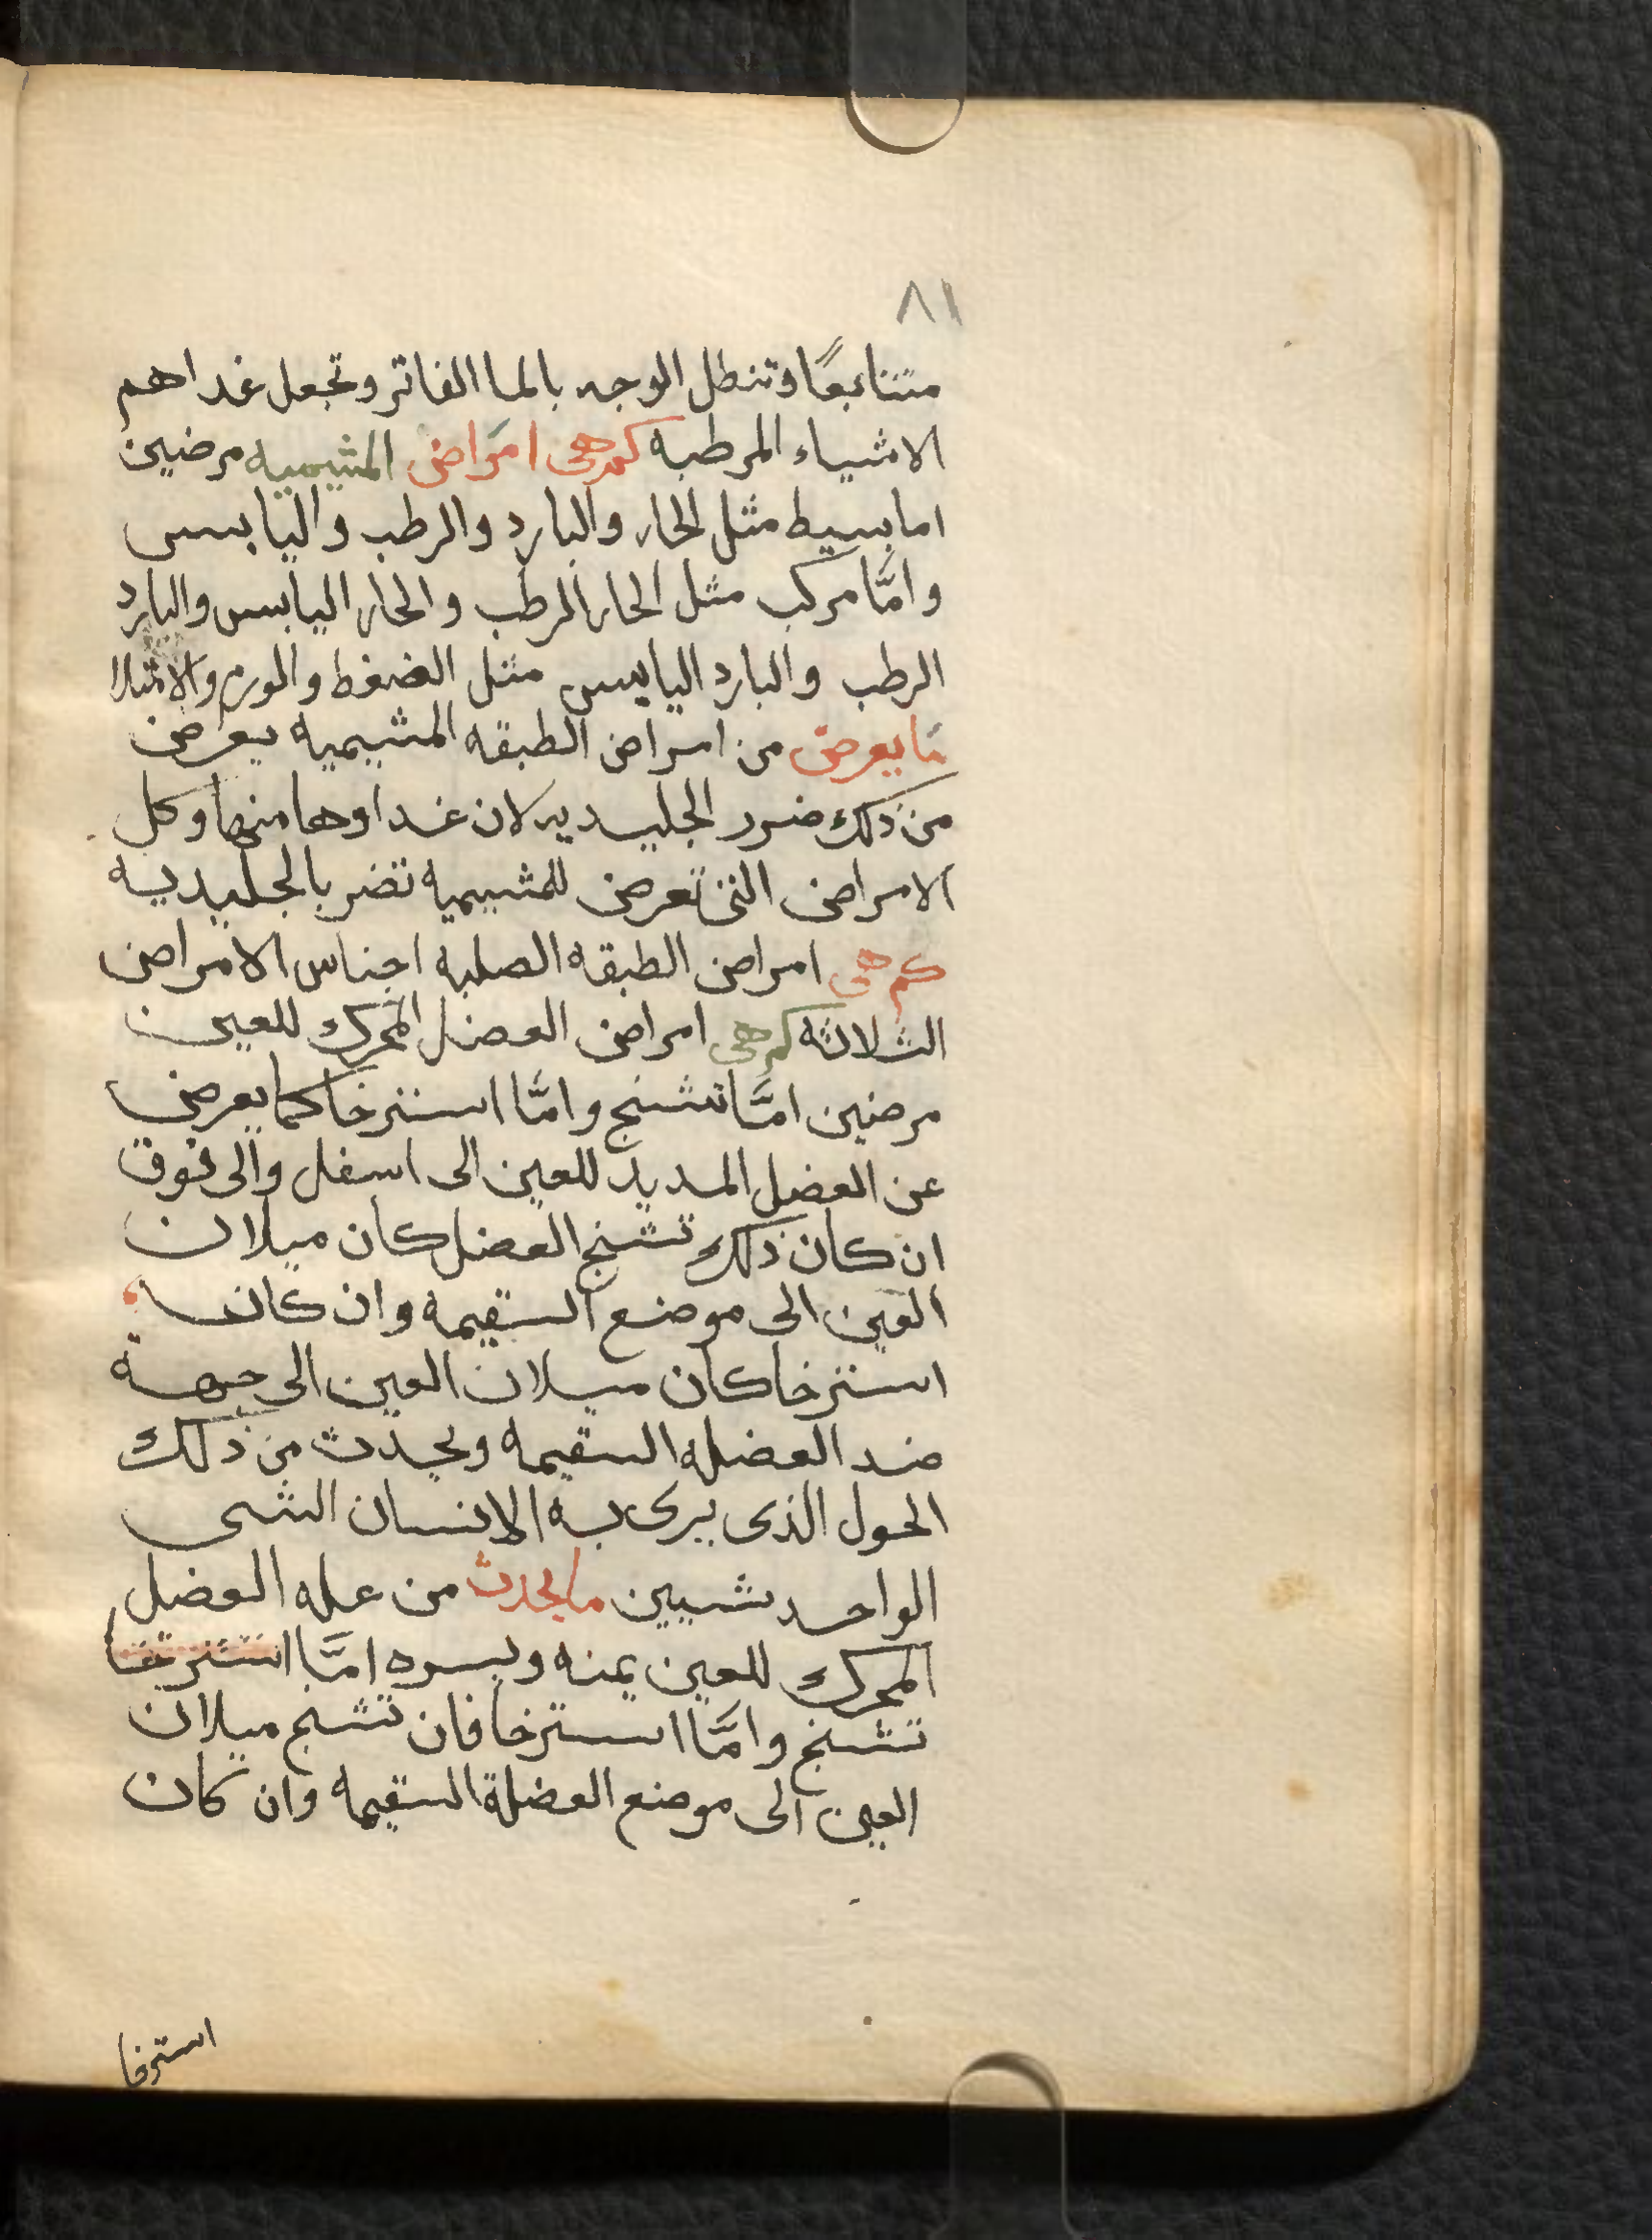 ٨١
متتابعًا وتنطل الوجه بالما الفاتر وتجعل غداهم
الاشياء المرطبه كم هى امراض المشيميه مرضين
اما بسيط مثل الحار والبارد والرطب واليابس
وامَّا مركب مثل الحار الرطب والحار اليابس والبارد
الرطب والبارد اليابس مثل الضغط والورم والامتلا
ما يعرض من امراض الطبقه المشيميه يعرض
من ذلك ضرر الجليديه لان غداوها منها وكل
الامراض التى تعرض للمشيميه تضر بالجليديه
كم هى امراض الطبقه الصلبه اجناس الامراض
الثلاثه كم هى امراض العضل المحرك للعين
مرضين امَّا تشنج وامَّا استرخا كما يعرض
عن العضل المديد للعين الى اسفل والى فوق
ان كان ذلك تشنج العضل كان ميلان
العين الى موضع السقيمه وان كان
استرخا كان ميلان العين الى جهة
ضد العضله السقيمه ويحدث من ذلك
الحول الذى يرى به الانسان الشى
الواحد شيين ما يحدث من عله العضل
المحرك للعين يمنه ويسره امَّا استرخا
تشنج وامَّا استرخا فان تشنج ميلان
العين الى موضع العضلة السقيمه وان كان
استرخا